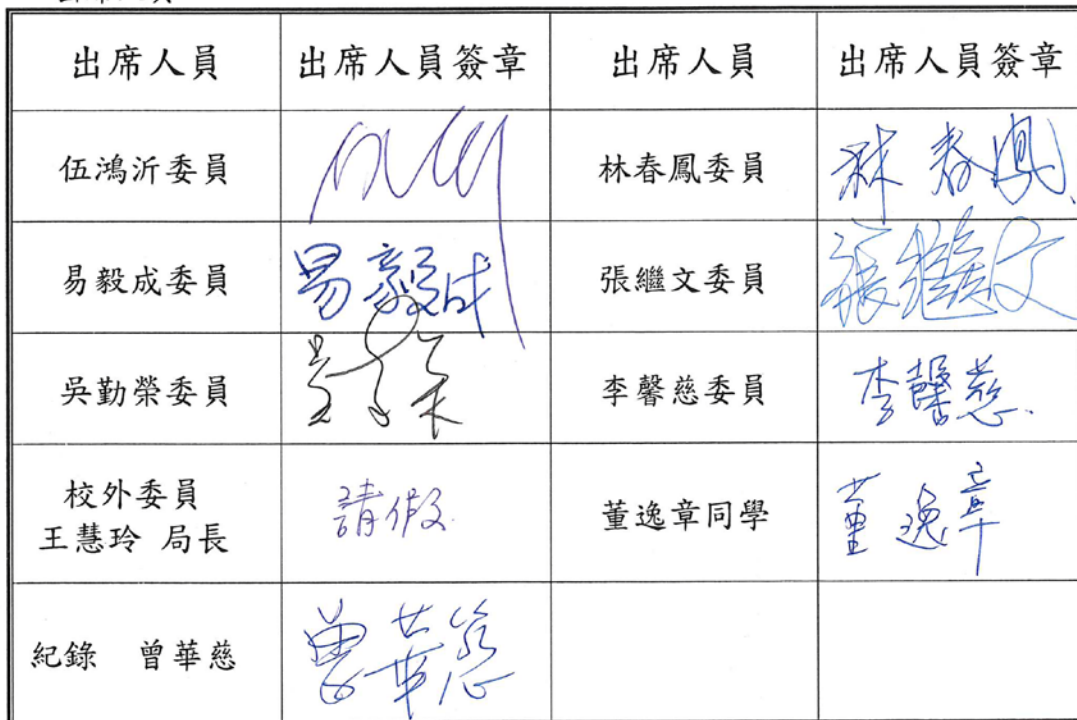 出席人員 出席人員簽章 出席人員 出席人員簽章
伍鴻沂委員 林春鳳委員 林春鳳
易毅成委員 易毅成 張繼文委員 張繼文
吳勤榮委員 李馨慈委員 李馨慈
校外委員
王慧玲 局長 請假 董逸章同學 董逸章
紀錄 曾華慈 曾華慈